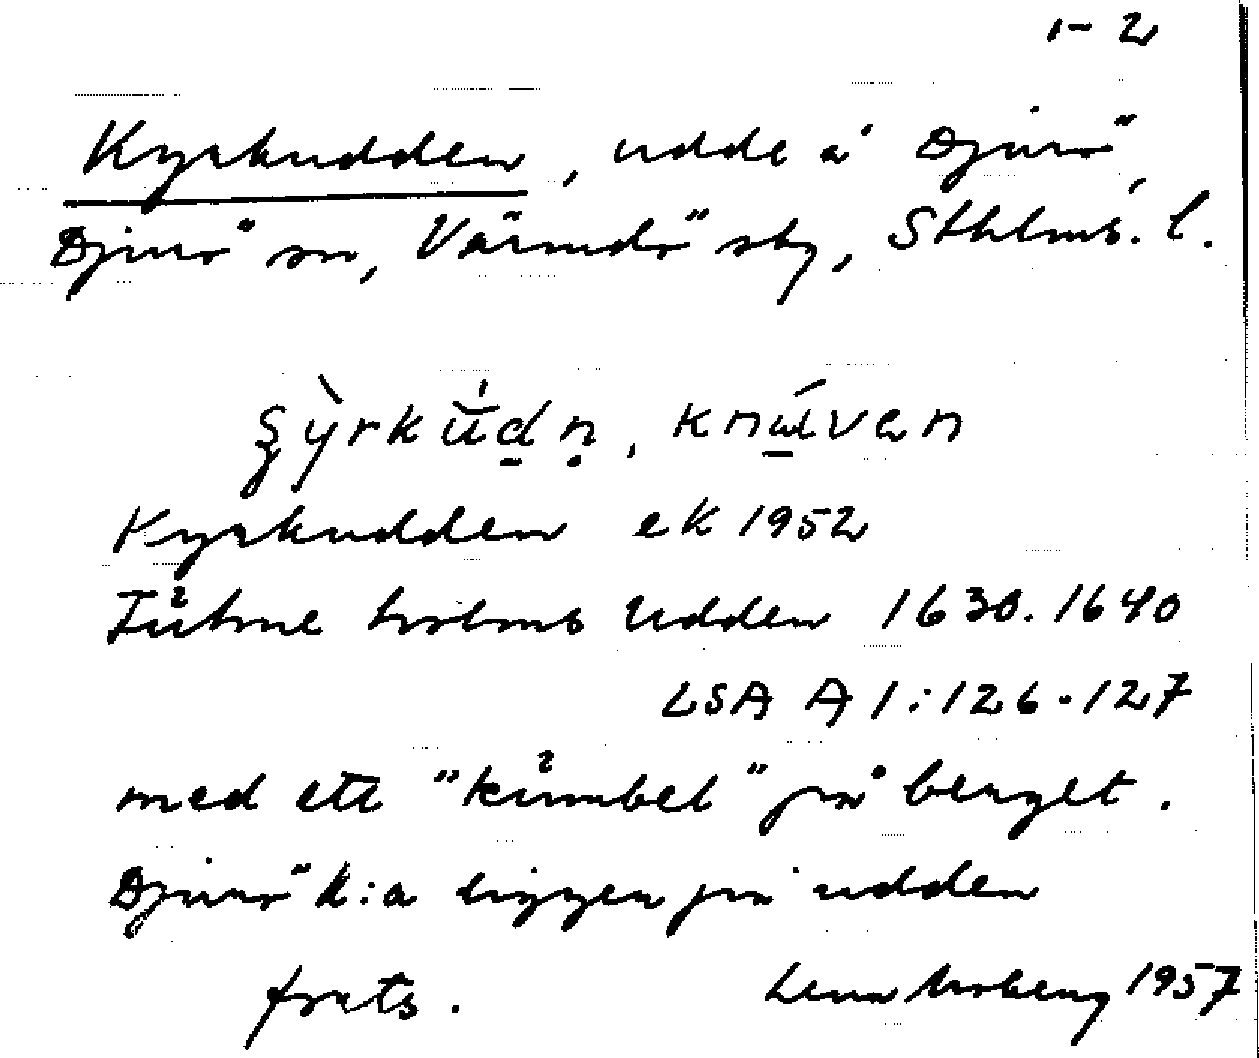 1-2
Kyrkudden, udde å Djurö,
Djurö sn, Värmdö sky, Sthlms. l.
kyrkudden, knaven
Kyrkudden ek 1952
holms Udden 1630. 1640
LSA A 1:126-127
med ett "kumbel" på berget.
Djurö k:a ligger på udden
forts. Lena Moberg 1957